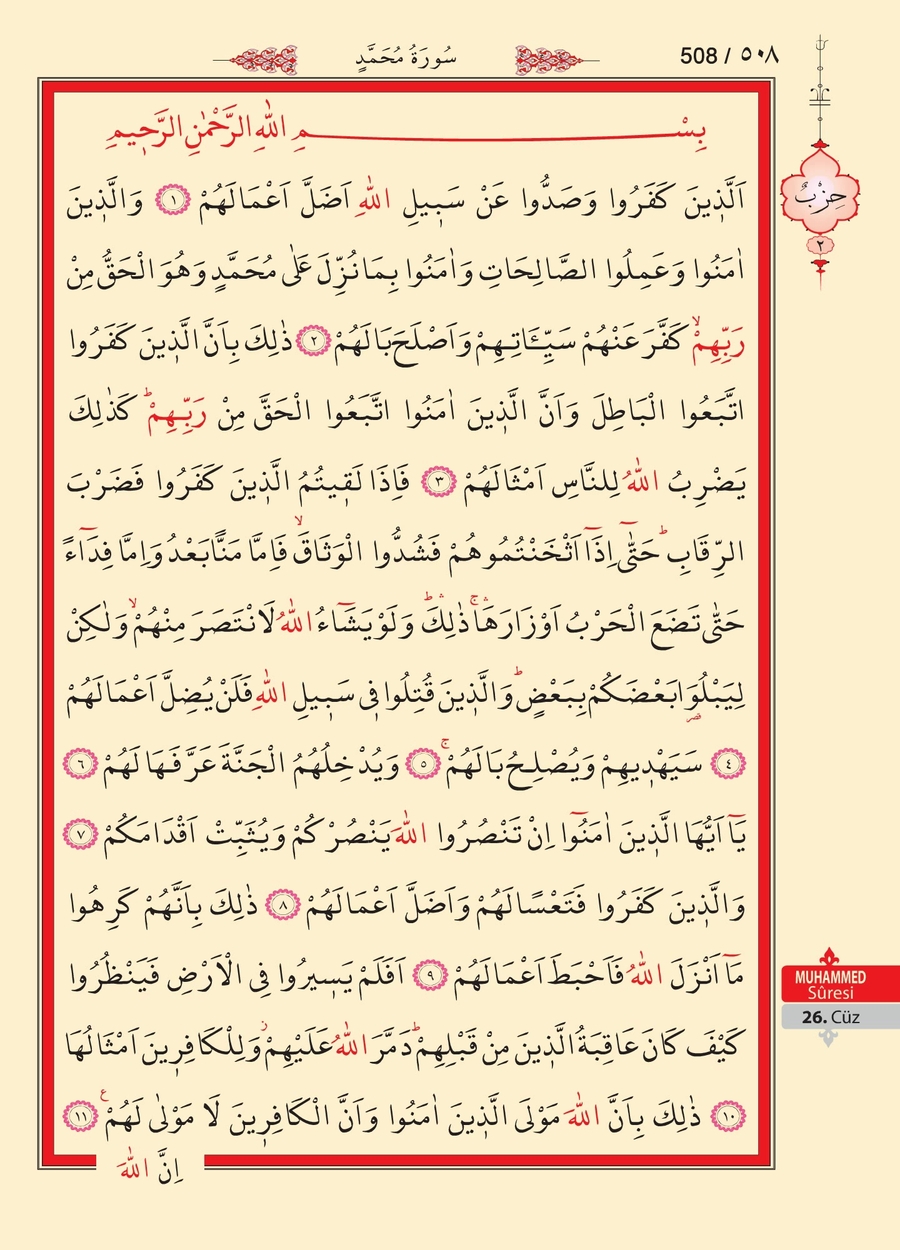 سُورَةُ مُحَمَّدٍ
508 / ٥٠٨
حِزْبٌ
٢
بِسْمِ اللّٰهِ الرَّحْمٰنِ الرَّحٖيمِ
اَلَّذٖينَ كَفَرُوا وَصَدُّوا عَنْ سَبٖيلِ اللّٰهِ اَضَلَّ اَعْمَالَهُمْ ﴿١﴾ وَالَّذٖينَ
اٰمَنُوا وَعَمِلُوا الصَّالِحَاتِ وَاٰمَنُوا بِمَا نُزِّلَ عَلٰى مُحَمَّدٍ وَهُوَ الْحَقُّ مِنْ
رَبِّهِمْۙ كَفَّرَ عَنْهُمْ سَيِّـَٔاتِهِمْ وَاَصْلَحَ بَالَهُمْ ﴿٢﴾ ذٰلِكَ بِاَنَّ الَّذٖينَ كَفَرُوا
اتَّبَعُوا الْبَاطِلَ وَاَنَّ الَّذٖينَ اٰمَنُوا اتَّبَعُوا الْحَقَّ مِنْ رَبِّهِمْؕ كَذٰلِكَ
يَضْرِبُ اللّٰهُ لِلنَّاسِ اَمْثَالَهُمْ ﴿٣﴾ فَاِذَا لَقٖيتُمُ الَّذٖينَ كَفَرُوا فَضَرْبَ
الرِّقَابِؕ حَتّٰٓى اِذَٓا اَثْخَنْتُمُوهُمْ فَشُدُّوا الْوَثَاقَۙ فَاِمَّا مَنًّا بَعْدُ وَاِمَّا فِدَٓاءً
حَتّٰى تَضَعَ الْحَرْبُ اَوْزَارَهَاۚۛ ذٰلِكَؕۛ وَلَوْ يَشَٓاءُ اللّٰهُ لَانْتَصَرَ مِنْهُمْۙ وَلٰكِنْ
لِيَبْلُوَ۬ا بَعْضَكُمْ بِبَعْضٍؕ وَالَّذٖينَ قُتِلُوا فٖى سَبٖيلِ اللّٰهِ فَلَنْ يُضِلَّ اَعْمَالَهُمْ
﴿٤﴾ سَيَهْدٖيهِمْ وَيُصْلِحُ بَالَهُمْۚ ﴿٥﴾ وَيُدْخِلُهُمُ الْجَنَّةَ عَرَّفَهَا لَهُمْ ﴿٦﴾
يَٓا اَيُّهَا الَّذٖينَ اٰمَنُٓوا اِنْ تَنْصُرُوا اللّٰهَ يَنْصُرْكُمْ وَيُثَبِّتْ اَقْدَامَكُمْ ﴿٧﴾
وَالَّذٖينَ كَفَرُوا فَتَعْسًا لَهُمْ وَاَضَلَّ اَعْمَالَهُمْ ﴿٨﴾ ذٰلِكَ بِاَنَّهُمْ كَرِهُوا
مَٓا اَنْزَلَ اللّٰهُ فَاَحْبَطَ اَعْمَالَهُمْ ﴿٩﴾ اَفَلَمْ يَسٖيرُوا فِى الْاَرْضِ فَيَنْظُرُوا
كَيْفَ كَانَ عَاقِبَةُ الَّذٖينَ مِنْ قَبْلِهِمْؕ دَمَّرَ اللّٰهُ عَلَيْهِمْؗ وَلِلْكَافِرٖينَ اَمْثَالُهَا
﴿١٠﴾ ذٰلِكَ بِاَنَّ اللّٰهَ مَوْلَى الَّذٖينَ اٰمَنُوا وَاَنَّ الْكَافِرٖينَ لَا مَوْلٰى لَهُمْ ع ﴿١١﴾
اِنَّ اللّٰهَ
MUHAMMED
Sûresi
26. Cüz